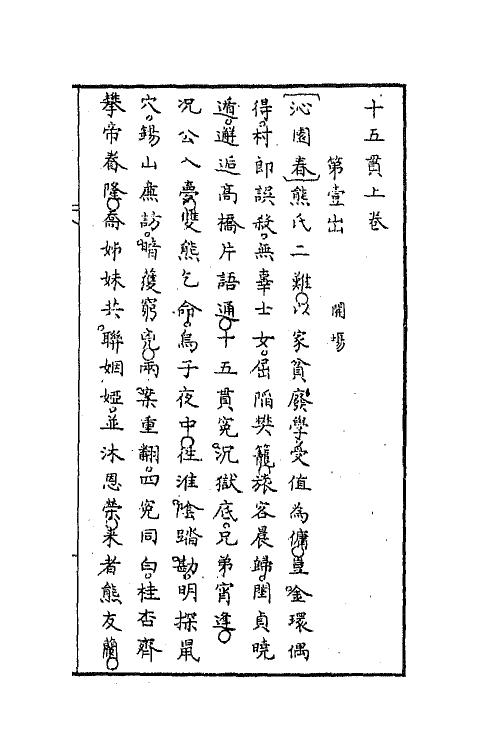 十五貫上卷
第壹出　開場
〔沁園春〕熊氏二難以家貧廢學受值為傭豈金環偶
得村郎誤殺無辜士女屈陷樊籠旅客晨歸閨貞曉
遁邂逅高橋片語通十五貫寃沉獄底兄弟宵逢
况公入夢雙熊乞命烏子夜中徃淮陰踏勘明探鼠
穴錫山廉訪暗獲窮兇兩案重翻四寃同白桂杏齊
攀帝眷隆喬姊妹共聯姻婭並沐恩榮来者熊友蘭